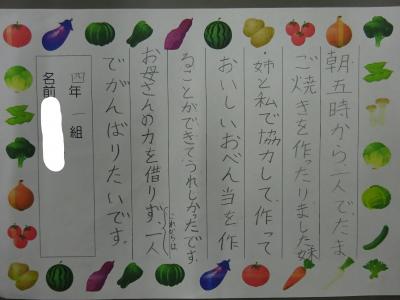 朝五時から、一人でたま
ご焼きを作ったりしました妹
・姉と私で協力して、作って
おいしいおべん当を作
ることができてうれしかったです。
これからは
お母さんの力を借りず、一人
でがんばりたいです。
四年 一組
名前